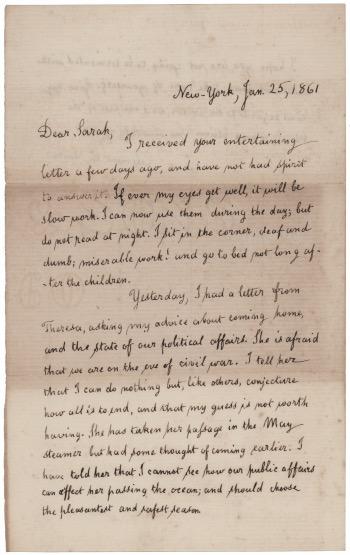 New-York, Jan. 25, 1861
Dear Sarah,
I received your entertaining
letter a few days ago, and have not had spirit
to answer it. If ever my eyes get well, it will be
slow work. I can now use them during the day; but
do not read at night. I sit in the corner, deaf and
dumb; miserable work! and go to bed not long af-
-ter the children.
Yesterday, I had a letter from
Theresa, asking my advice about coming home,
and the state of our political affairs. She is afraid
that we are on the eve of civil war. I tell her
that I can do nothing but, like others, conjecture
how all is to end, and that my guess is not worth
having. She has taken her passage in the May
steamer but had some thought of coming earlier. I
have told her that I cannot see how our public affairs
can affect her passing the ocean; and should choose
the pleasantest and safest season